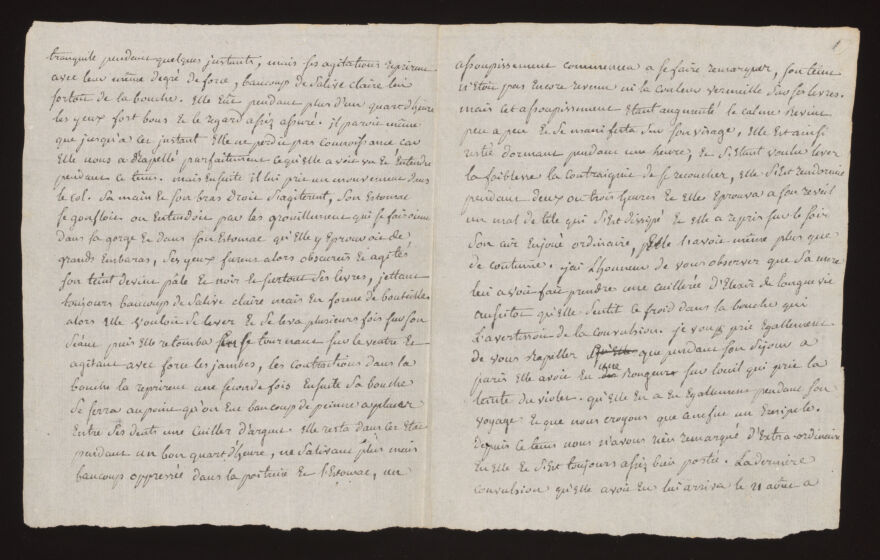 tranquile pendant quelques justants, mais ses agitations reprirent
avec leur même degré de force, beaucoup de Salive claire lui
sortoit de la bouche. Elle Eut pendant plus d'un quart d'heure
les yeux fort bons Et le regard assez assuré. il paroit même
que jusqu'a cet justant Elle ne perdit pas connoissance car
Elle nous a Rapellé parfaitement ce qu'elle avoit vu Et Entendu
pendant ce tems. mais Ensuite il lui prit un mouvement dans
le Col. Sa main Et son bras Droit S'agiterent, Son Estomac
se gonfloit on Entendoit par les grouillement qui se faisoient
dans la gorge Et dans son Estomac qu'Elle y Eprouvoit de
grands Embaras, Ses yeux furent alors obscurcis Et agités
son teint devint pâle Et noir Et surtout Ses levres, jettant
toujours beaucoup de Salive claire mais En forme de bouteilles
alors Elle vouloit se lever Et Se leva plusieurs fois sur son
Séant puis Elle retomba se tournant sur le ventre Et
agitant avec force les jambes, les contractions dans la
bouche la reprirent une seconde fois Ensuite Sa bouche
Se serra au point qu'on Eut beaucoup de peinne a placer
Entre Ses dents une Cuiller d'argent. Elle resta dans cet Etat
pendant un bon quart d'heure, ne Salivant plus mais
beaucoup oppressée dans la poitrine Et l'Estomac, un
1
assoupissement commenca a se faire remarquer, son teint
n'Etoit pas Encore revenu ni la Couleur vermeille Sur Ses levres.
mais cet assoupissement Etant augmenté le calme Revint
peu a peu Et Se manifesta Sur Son visage, Elle Est ainsi
restée dormant pendant une heure, Et S'Etant voulu lever
la foiblesse la contraignit de se recoucher, Elle S'Est rendormie
pendant deux ou trois heures Et Elle Eprouva a son reveil
un mal de tête qui S'Est dissipé Et Elle a repris sur le soir
Son air Enjoué ordinaire, Elle l'avoit même plus que
de coutume. j'ai L'honneur de vous observer que Sa mere
lui avoit fait prendre une cuillerée d'Elexir de longue vie
aussitôt qu'Elle Sentit le froid dans la bouche qui
L'avertissoit de la convulsion. je vous prie Egallement
de vous Rapeller que pendant son Séjour a
paris Elle avoit Eu une Rougeur sur l'oeil qui prit la
teinte du violet. qu'Elle En a Eu Egallement pendant son
voyage Et que nous croyons que ce fut un Erésipele.
Depuis ce tems nous n'avons rien remarqué d'Extraordinaire
En Elle Et S'Est toujours assez bien portée. La derniere
convulsion qu'Elle avoit Eu lui arriva le 21 août a